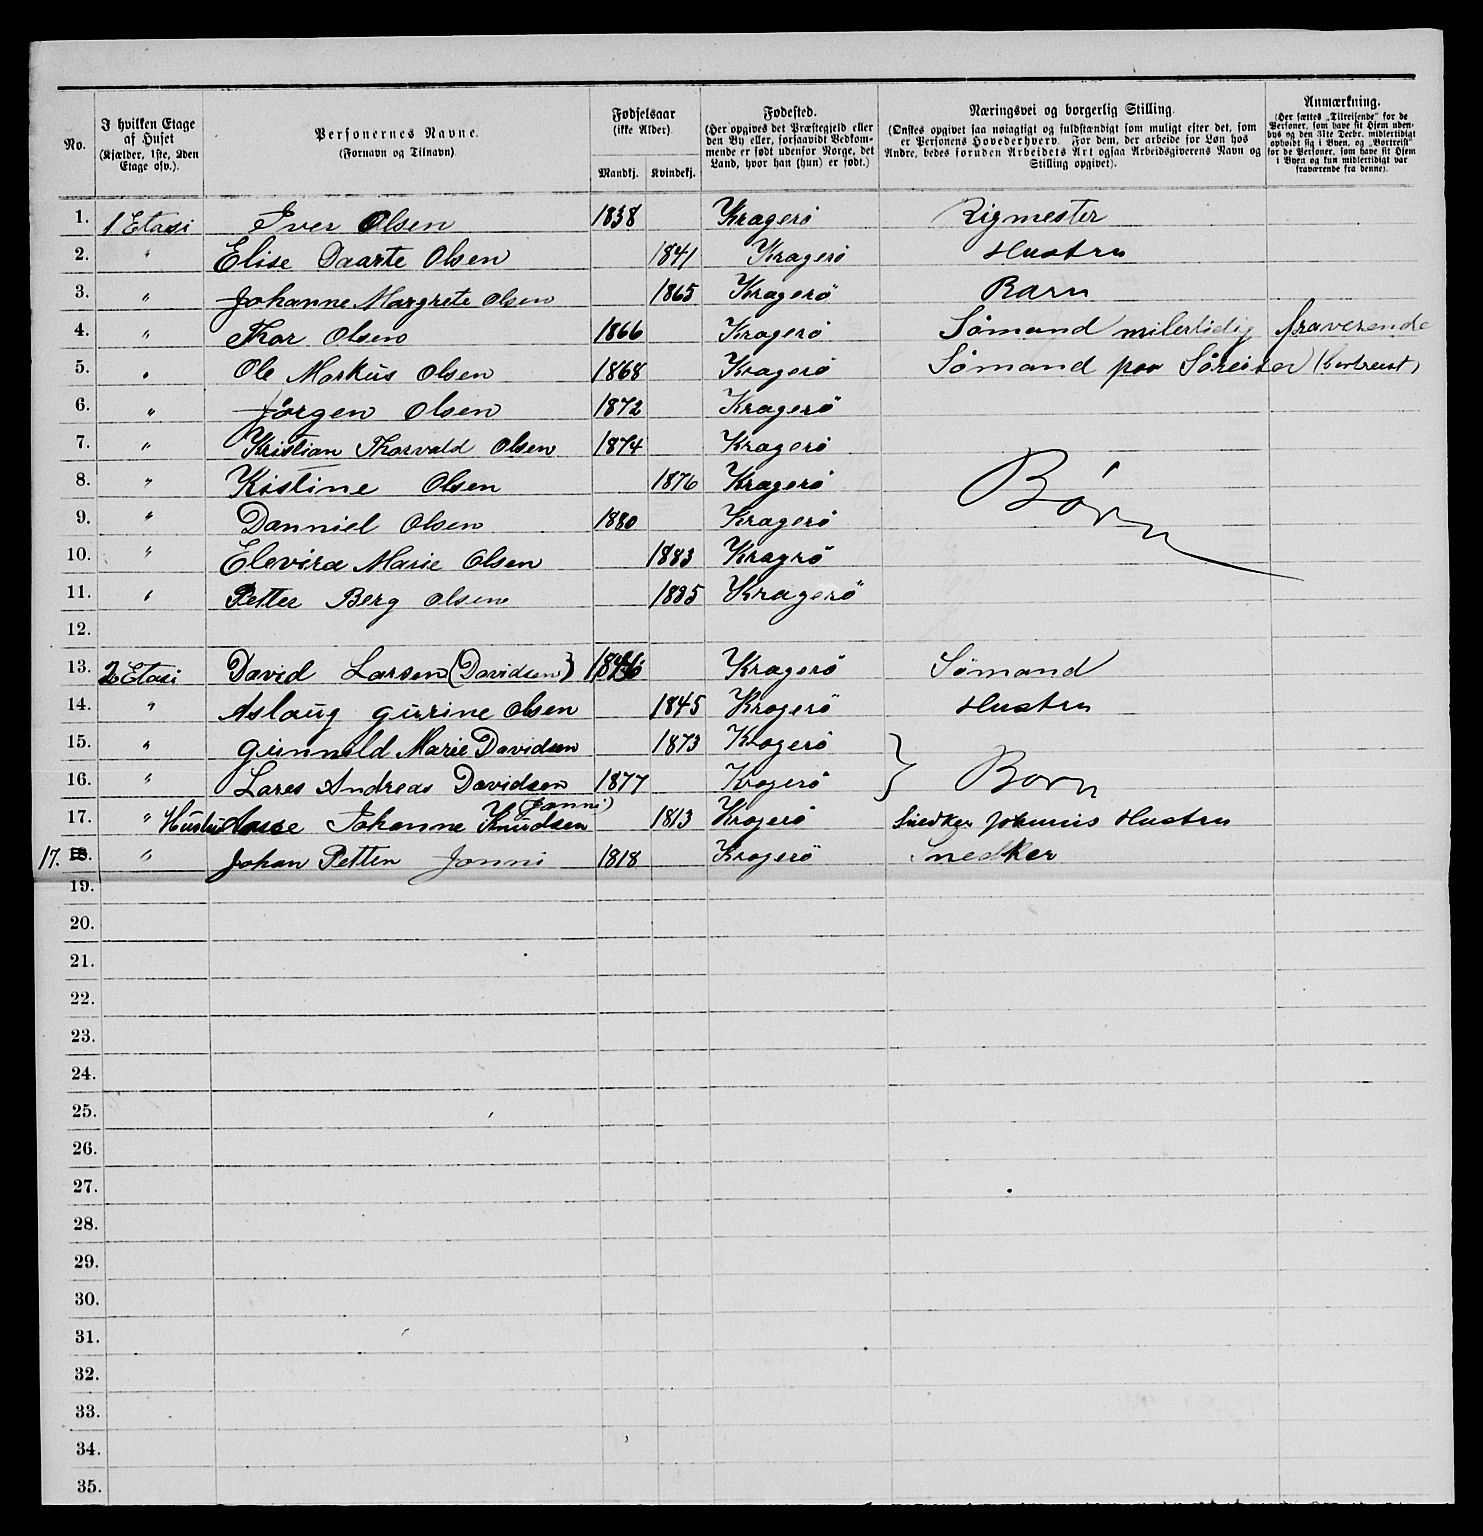 No.
I hvilken Etage af Huset (Kjælder, 1ste, 2den Etage osv.).
Personernes Navne. (Fornavn og Tilnavn)
Fødselsaar (ikke Alder).
Mandkj. Kvindekj.
Fødested. (Her opgives det Præstegjeld eller den By eller, forsaavidt Vedkommende er født udenfor Norge, det Land, hvor han (hun) er født.)
Næringsvei og borgerlig Stilling. (Ønskes opgivet saa nøiagtigt og fuldstændigt som muligt efter det, som er Personens Hovederhverv. For dem, der arbeide for Løn hos Andre, bedes foruden Arbeidets Art ogsaa Arbeidsgiverens Navn og Stilling opgivet).
Anmærkning. (Her sættes „Tilreisende“ for de Personer, som have sit Hjem udenbys og den 31te Decbr. midlertidigt opholdt sig i Byen, og „Bortreist“ for de Personer, som have sit Hjem i Byen og kun midlertidigt var fraværende fra denne).
1. 1 Etasi Iver Olsen 1838 Kragerö Rigmester
2. " Elise Daarte Olsen 1841 Kragerö Hustru
3. " Johanne Margrete Olsen 1865 Kragerö Barn
4. " Thor Olsen 1866 Kragerö Sömand milertidig fraverende
5. " Ole Markus Olsen 1868 Kragerö Sömand paa (bortreist)
6. " Jörgen Olsen 1872 Kragerö
7. " Kristian Thorvald Olsen 1874 Kragerö
8. " Kistine Olsen 1876 Kragerö Børn
9. " Danniel Olsen 1880 Kragerö
10. " Elevira Marie Olsen 1883 Kragrö
11. " Petter Berg Olsen 1885 Kragerö
12.
13. 2 Etasi David Larsen (Davidsen) Kragerö Sömand
14. " Aslaug Gurine Olsen 1845 Kragerö Hustru
15. " Gunnild Marie Davidsen 1873 Kragerö
16. " Lares Andreas Davidsen 1877 Kragerö } Born
17. " Hustru Johanne Knudsen (Jonni) 1813 Kragerö Snedker Hustru
17. 18. " Johan Petten Jonni 1818 Kragerö Snedker
19.
20.
21.
22.
23.
24.
25.
26.
27.
28.
29.
30.
31.
32.
33.
34.
35.